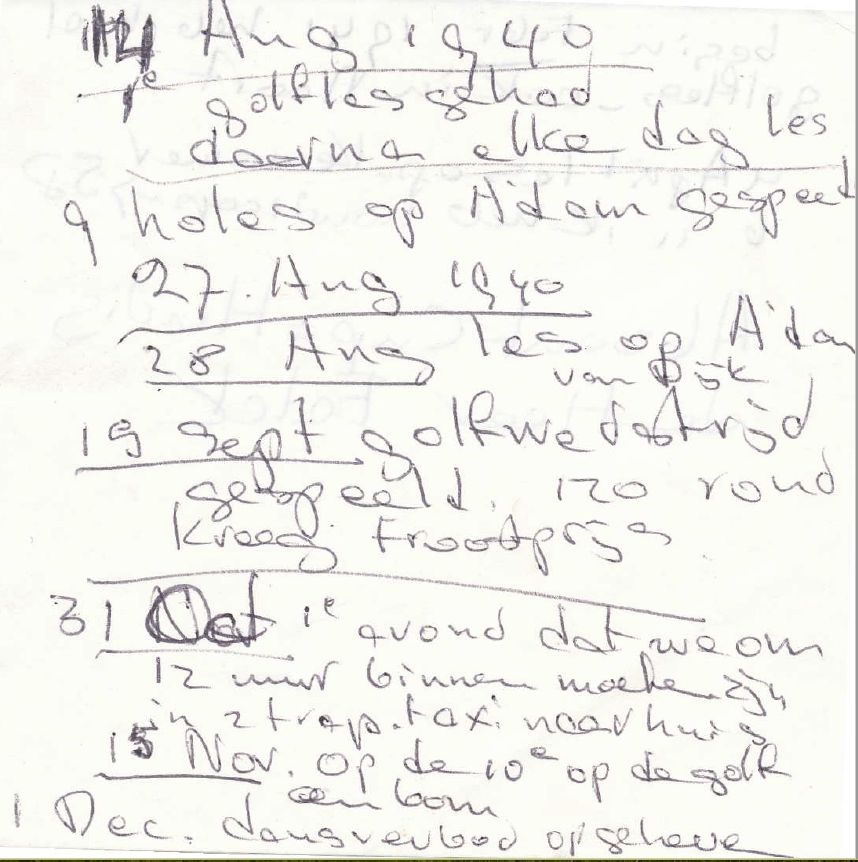 14 Aug 1940
1e golfles gehad
daarna elke dag les
9 holes op A'dam gespeeld
27. Aug 1940
28 Aug les op A'dam
van Dijk
19 Sept golfwedstrijd
gespeeld. 120 rond
Kreeg troostprijs
31 Oct 1e avond dat we om
12 uur binnen moeten zijn
in 2 trap.taxi naar huis
15 Nov. op de 10e op de golf
een bom
1 Dec. dansverbod opgeheven